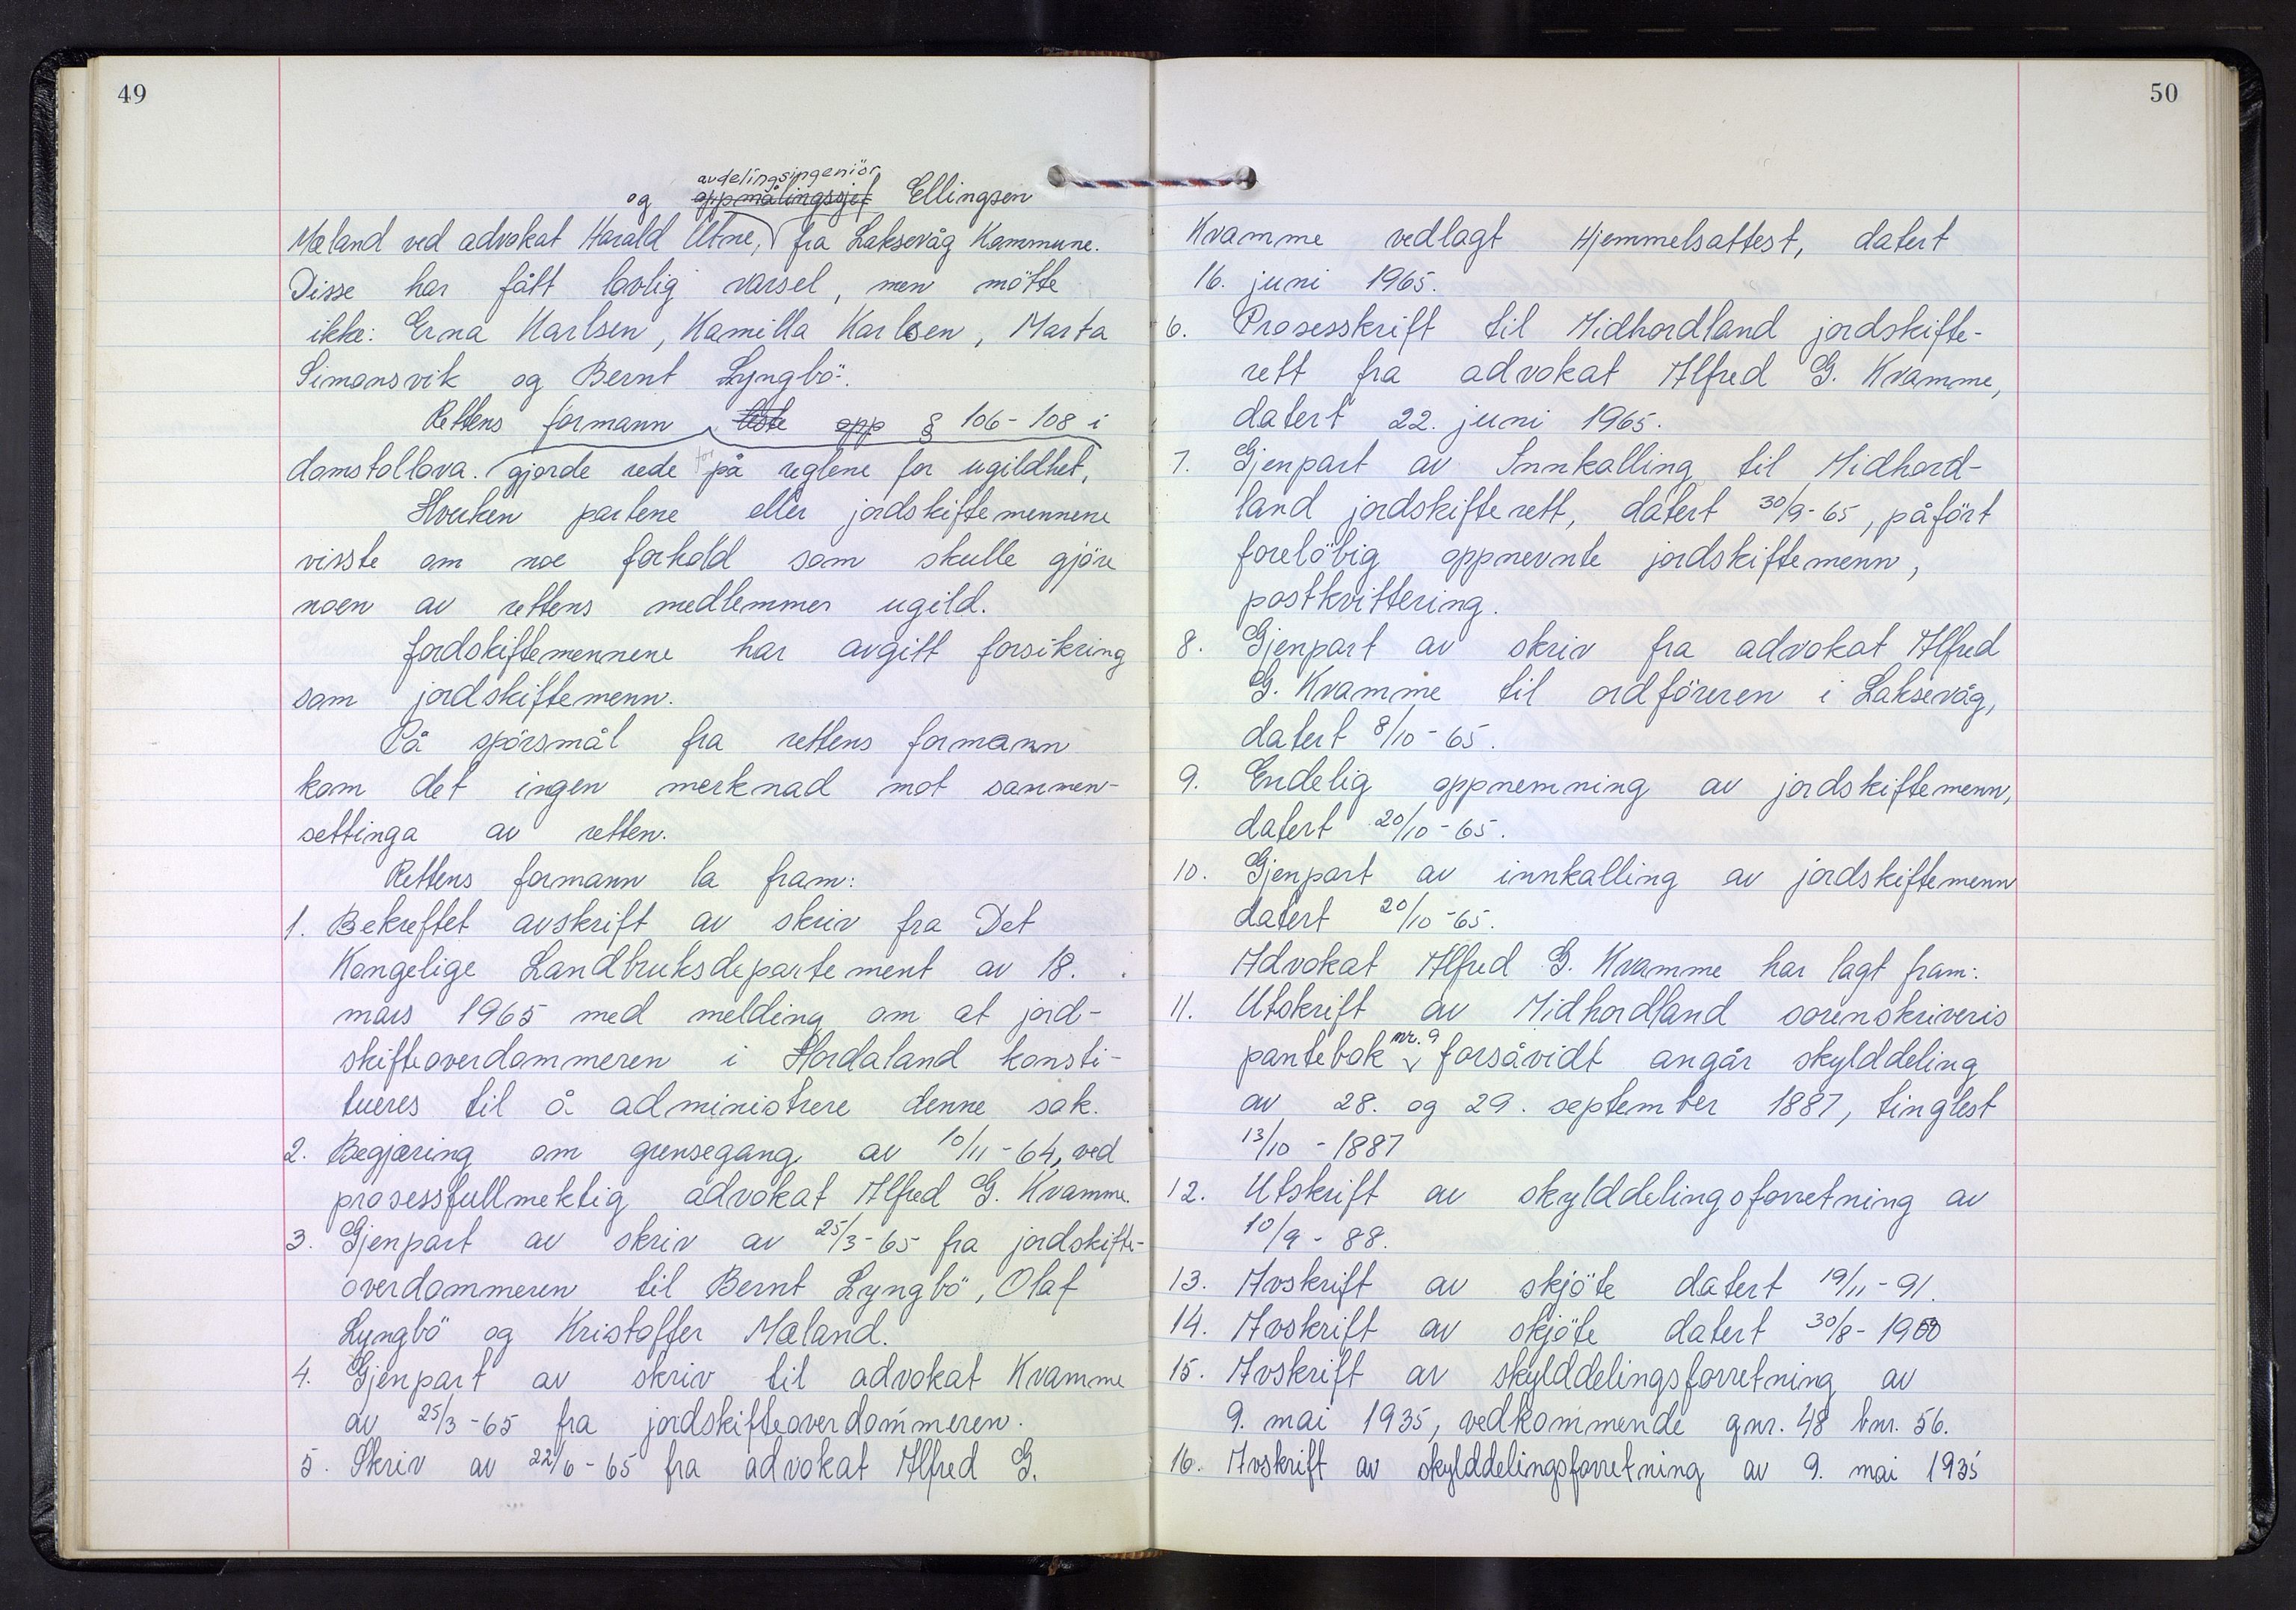 49
avdelingsingeniör
og oppmålingssjef Ellingsen
Mæland ved advokat Harald Utne, fra Laksevåg Kommune.
Disse har fått lovlig varsel, men mötte
ikke: Erna Karlsen, Kamilla Karlsen, Marta
Simonsvik og Bernt Lyngbö.
Rettens formann leste opp § 106-108 i
domstollova. gjorde rede for på reglene for ugildhet,
Hverken partene eller jordskiftemennene
visste om noe forhold som skulle gjöre
noen av rettens medlemmer ugild.
Jordskiftemennene har avgitt forsikring
som jordskiftemenn.
På spörsmål fra rettens formann
kom det ingen merknad mot sammen-
settinga av retten.
Rettens formann la fram:
1. Bekreftet avskrift av skriv fra Det
Kongelige Landbruksdepartement av 18.
mars 1965 med melding om at jord-
skifteoverdommeren i Hordaland konsti-
tueres til å administrere denne sak.
2. Begjæring om grensegang av 10/11-64, ved
prosessfullmektig advokat Alfred G. Kvamme.
3. Gjenpart av skriv av 25/3-65 fra jordskifte-
overdommeren til Bernt Lyngbö, Olaf
Lyngbö og Kristoffer Mæland.
4. Gjenpart av skriv til advokat Kvamme
av 25/3-65 fra jordskifteoverdommeren.
5. Skriv av 22/6-65 fra advokat Alfred G.
50
Kvamme vedlagt Hjemmelsattest, datert
16. juni 1965.
6. Prosesskrift til Midhordland jordskifte-
rett fra advokat Alfred G. Kvamme,
datert 22. juni 1965.
7. Gjenpart av Innkalling til Midhord-
land jordskifterett, datert 30/9-65, påfört
forelöbig oppnevnte jordskiftemenn,
postkvittering.
8. Gjenpart av skriv fra advokat Alfred
G. Kvamme til ordföreren i Laksevåg,
datert 8/10-65.
9. Endelig oppnemning av jordskiftemenn,
datert 20/10-65.
10. Gjenpart av innkalling av jordskiftemenn
datert 20/10-65.
Advokat Alfred G. Kvamme har lagt fram:
11. Utskrift av Midhordland sorenskriveris
pantebok nr. 9 forsåvidt angår skylddeling
av 28. og 29. september 1887, tinglest
13/10-1887
12. Utskrift av skylddelingsforretning av
10/9-88.
13. Avskrift av skjöte datert 19/11-91.
14. Avskrift av skjöte datert 30/8-1900
15. Avskrift av skylddelingsforretning av
9. mai 1935, vedkommende gnr. 48 bnr. 56.
16. Avskrift av skylddelingsforretning av 9. mai 1935